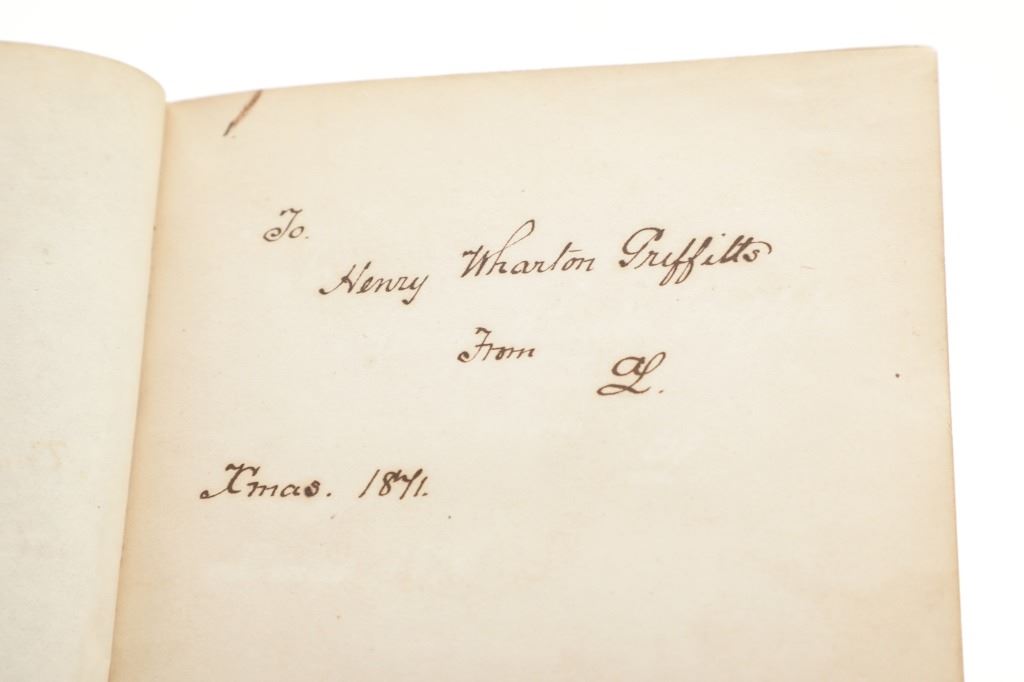 To.
Henry Wharton Griffitts
From
AL.
Xmas. 1871.